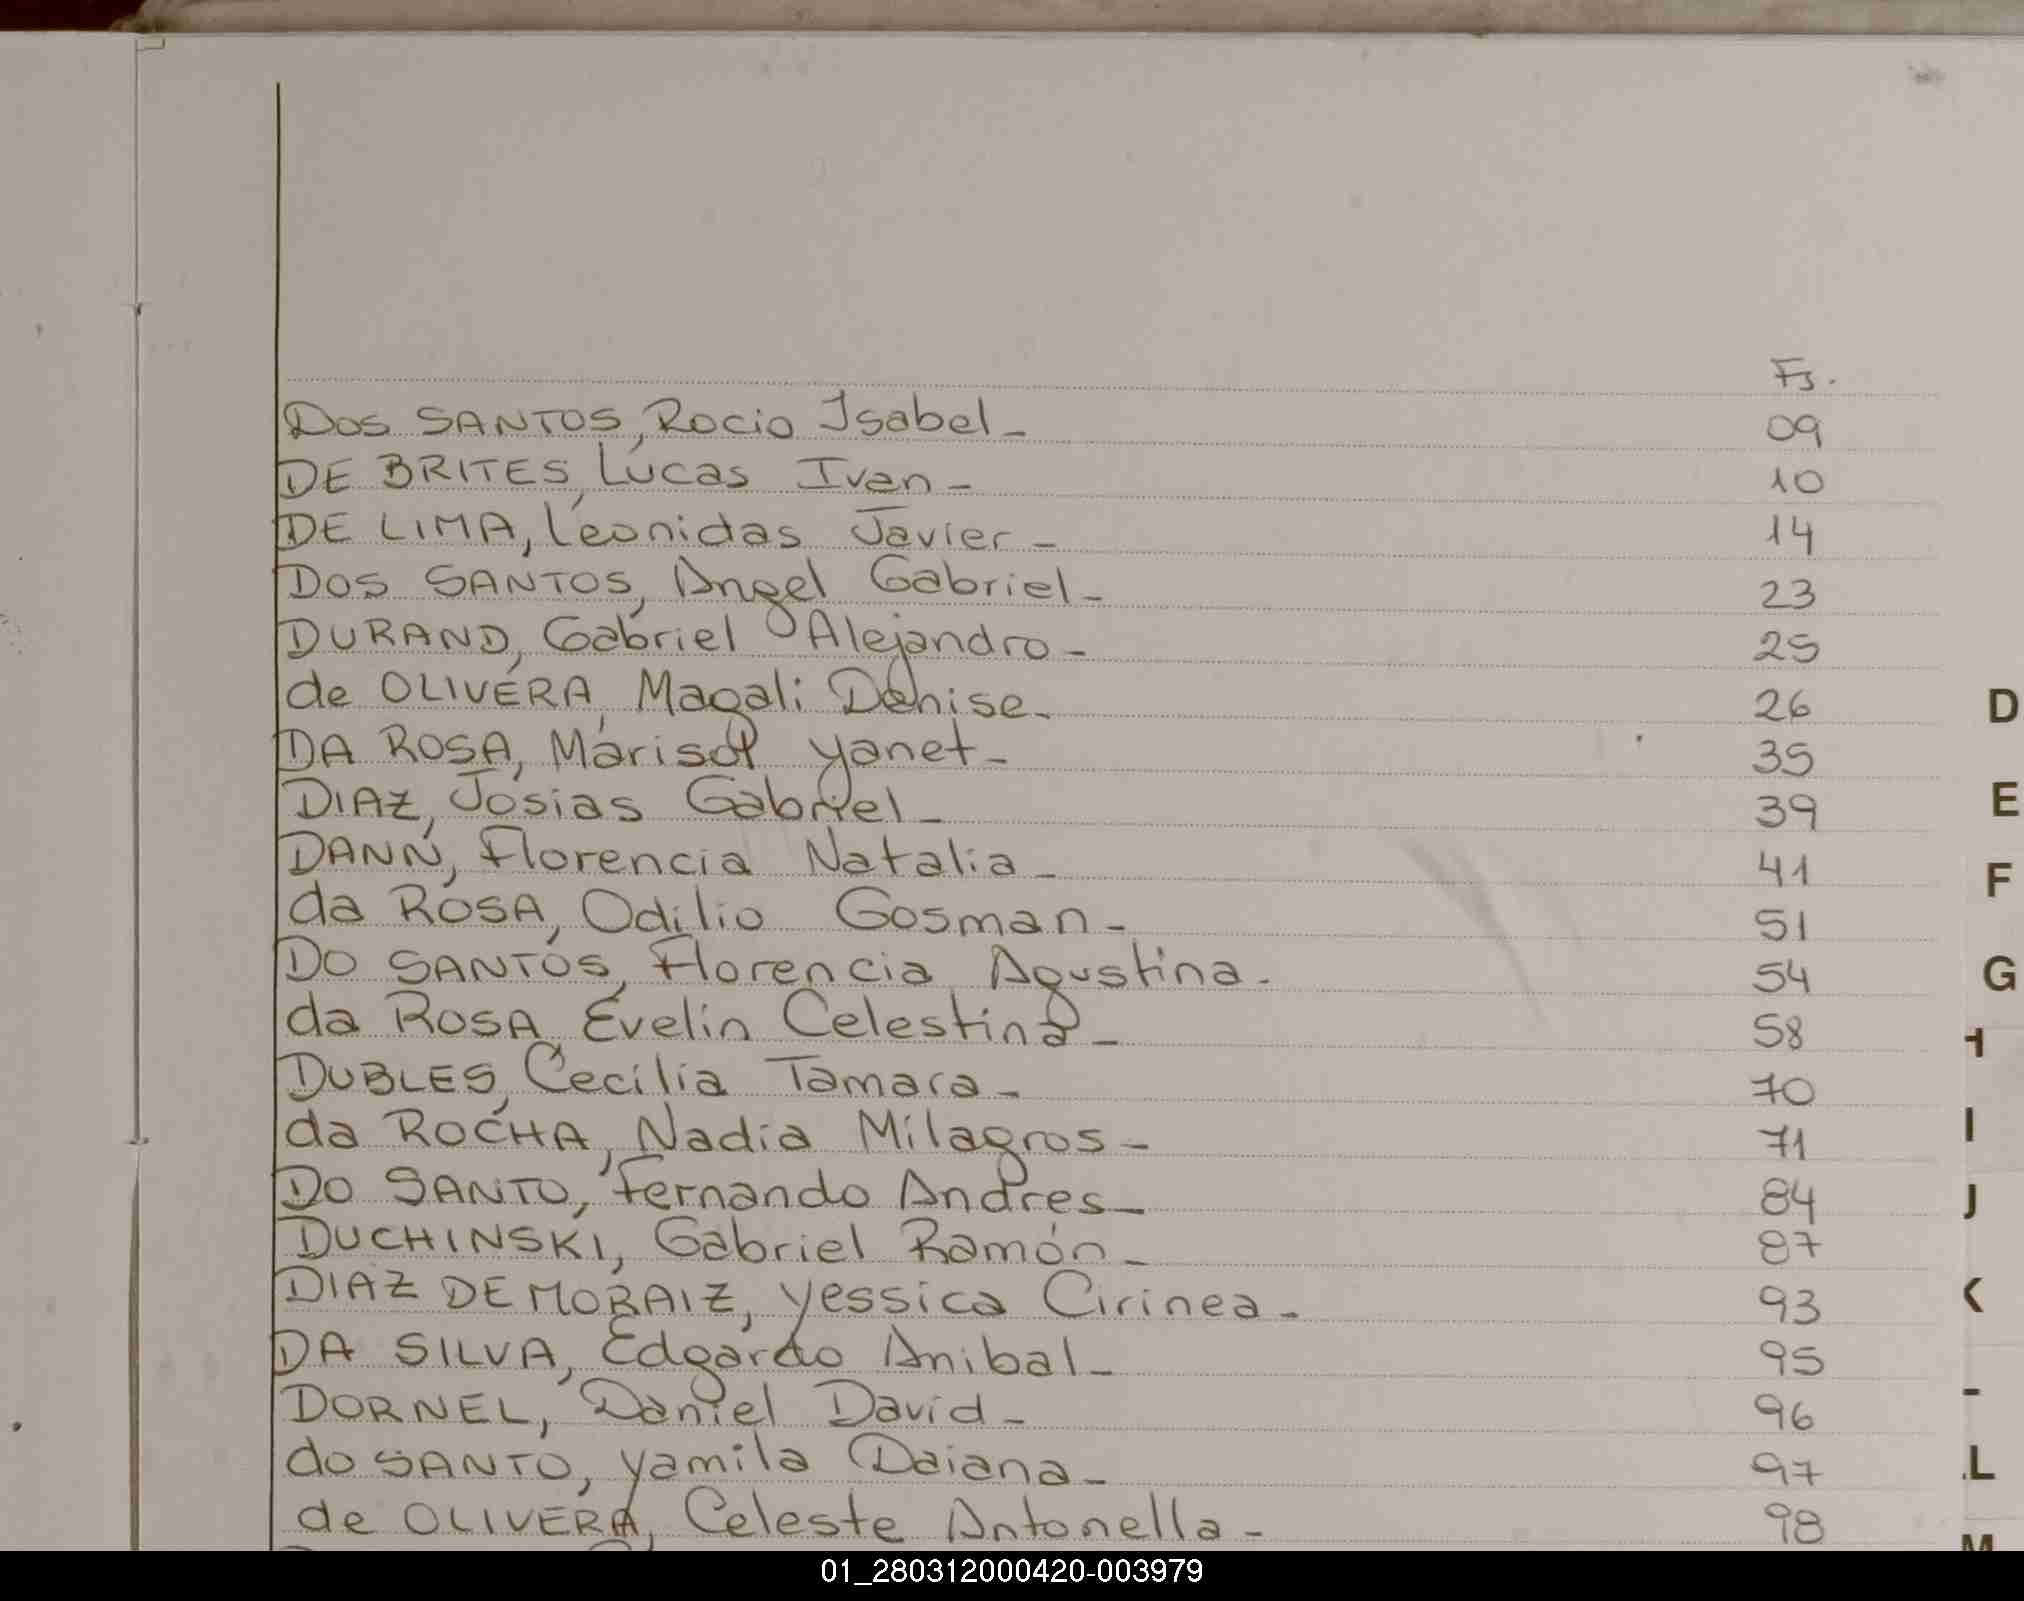 Fs.
DOS SANTOS, Rocio Isabel_ 09
DE BRITES, Lucas Ivan_ 10
DE LIMA, Leonidas Javier_ 14
DOS SANTOS, Angel Gabriel_ 23
DURAND, Gabriel Alejandro_ 25
de OLIVERA, Magali Denise_ 26
DA ROSA, Marisol Yanet_ 35
DIAZ, Josias Gabriel_ 39
DANN, Florencia Natalia_ 41
da ROSA, Odilio Gosman_ 51
DO SANTOS, Florencia Agustina_ 54
da ROSA, Evelin Celestina_ 58
DUBLES, Cecilia Tamara_ 70
da ROCHA, Nadia Milagros_ 71
DO SANTO, Fernando Andres_ 84
DUCHINSKI, Gabriel Ramón_ 87
DIAZ DE MORAIZ, Yessica Cirinea_ 93
DA SILVA, Edgardo Anibal_ 95
DORNEL, Daniel David_ 96
do SANTO, Yamila Daiana_ 97
de OLIVERA, Celeste Antonella_ 98
D
E
F
G
H
I
J
K
L
M
01_280312000420-003979